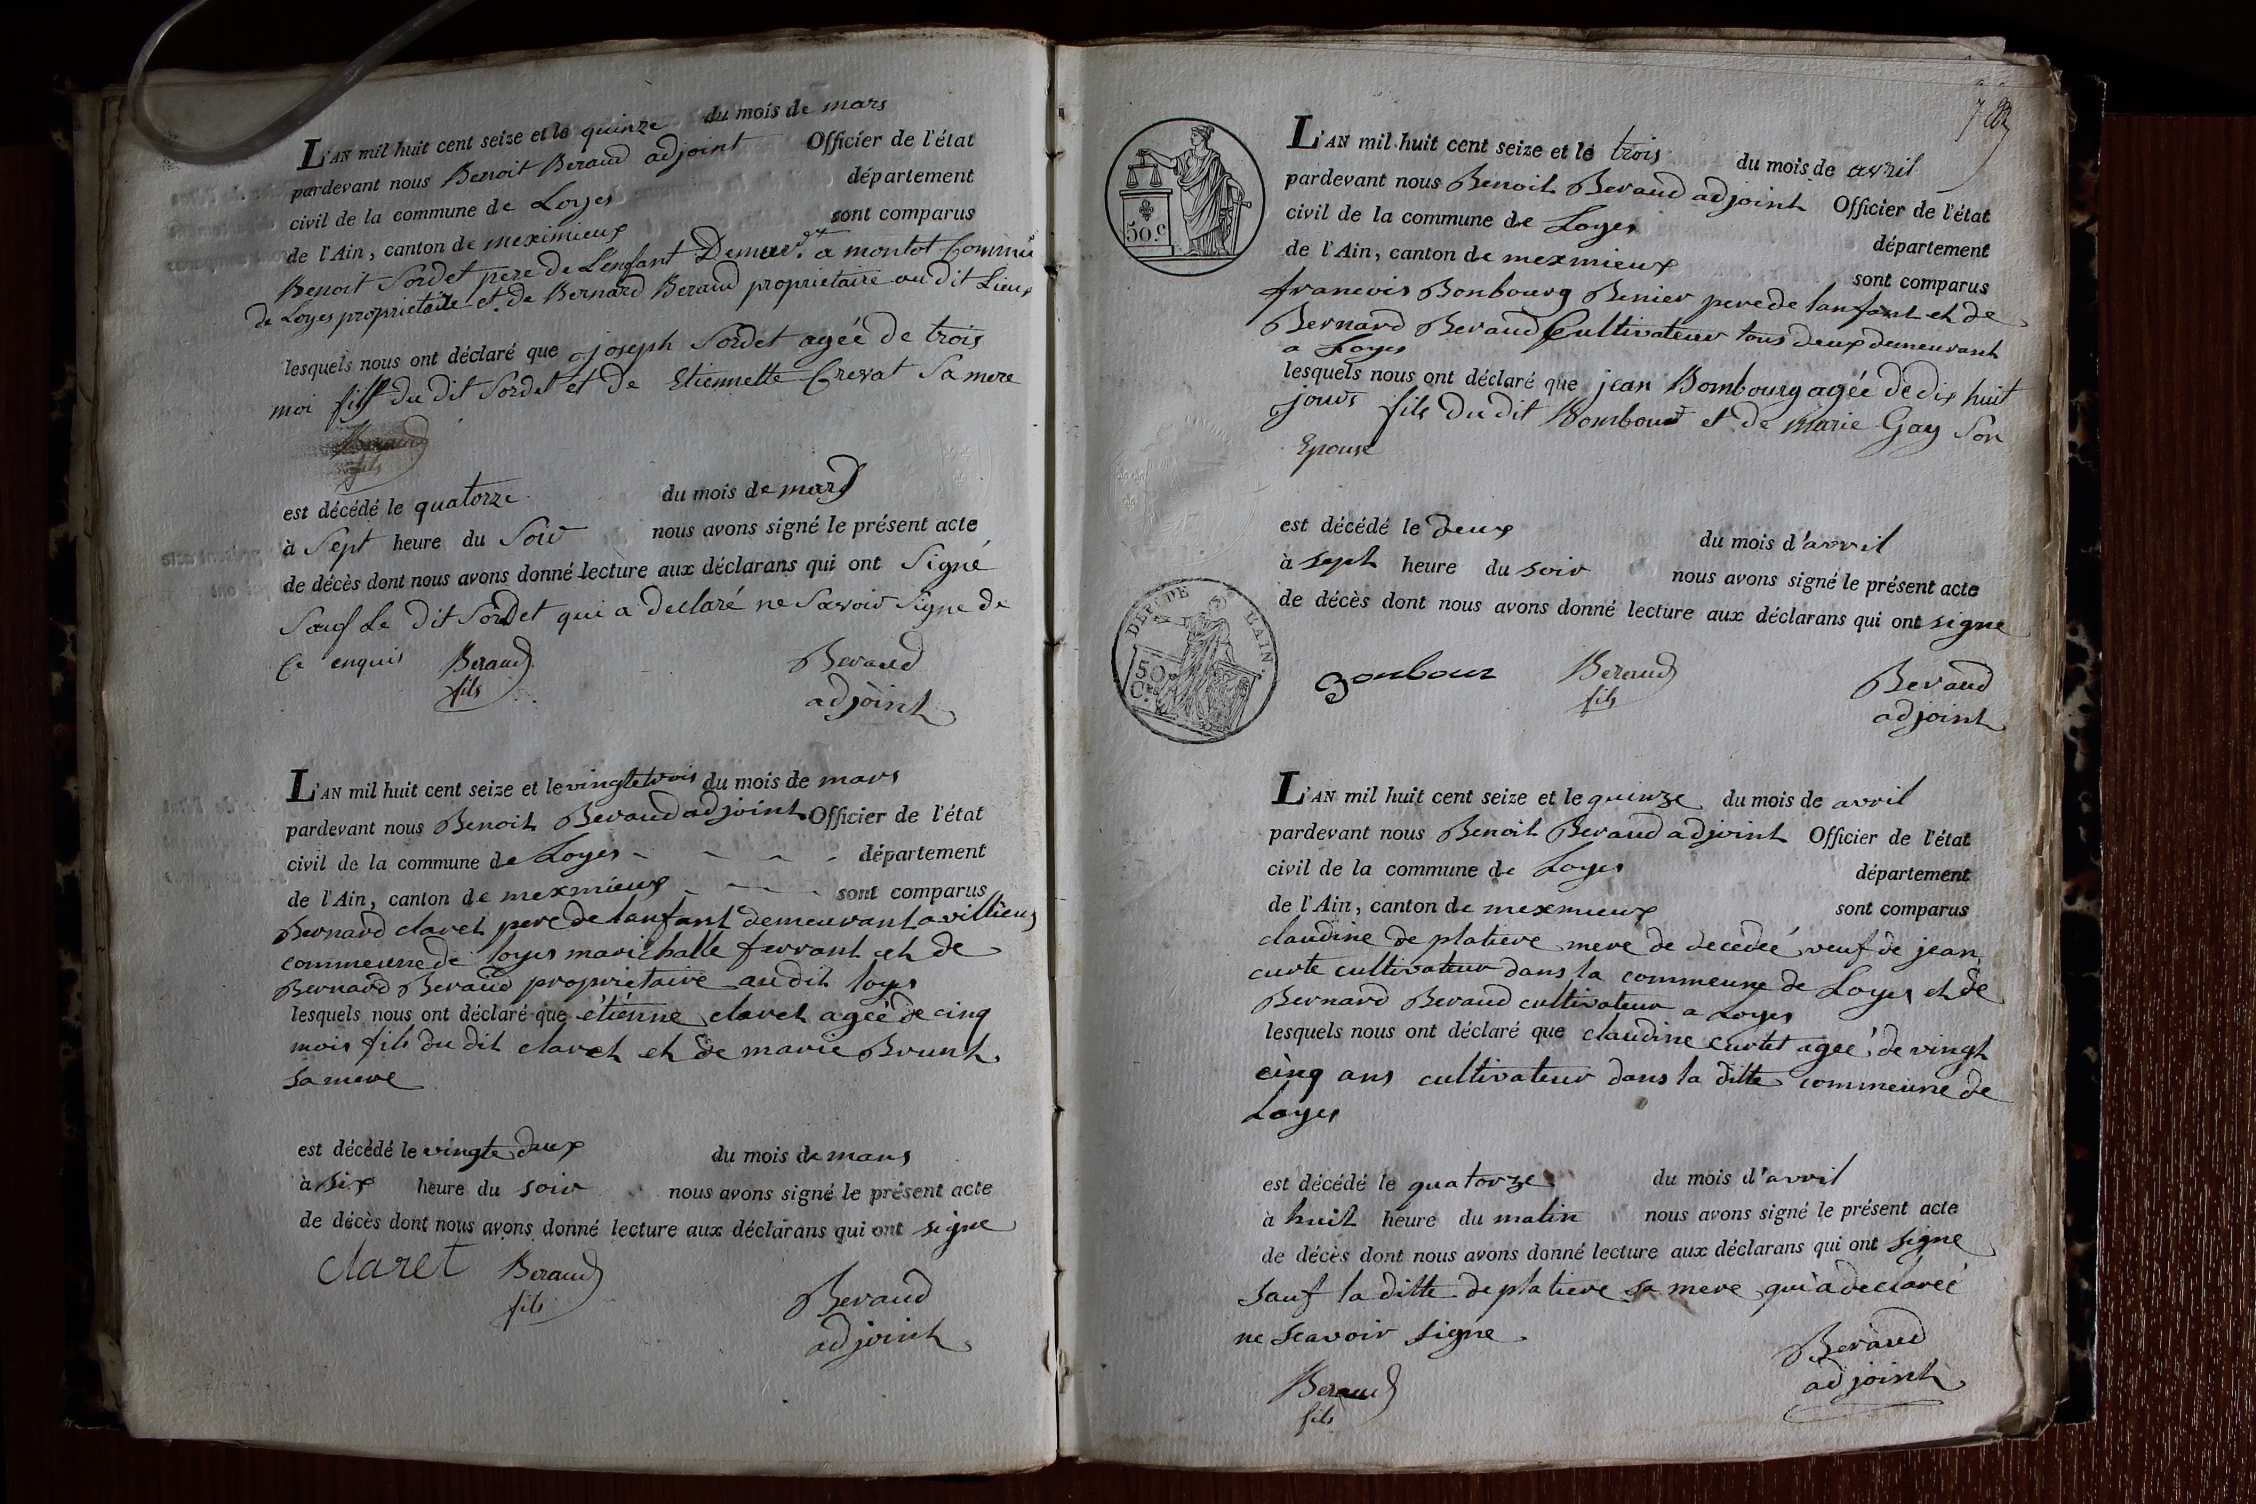 L'AN mil huit cent seize et le quinze du mois de mars
pardevant nous Benoit Beraud adjoint Officier de l'état
civil de la commune de Loyes département
de l'Ain, canton de meximieux sont comparus
Benoit Sordet pere de L'enfant Demeur.nt a montot Commune
de Loyes proprietaire et de Bernard Beraud proprietaire au dit Lieux
lesquels nous ont déclaré que joseph Sordet agée de trois
moi fils du dit Sordet et de Etiennette Crevat Sa mere
Beraud
fils
est décédé le quatorze du mois de mars
à Sept heure du Soir nous avons signé le présent acte
de décès dont nous avons donné lecture aux déclarans qui ont Signé
Sauf Le Dit Sordet qui a declaré ne Savoir Signe de
Ce enquis Beraud Beraud
fils adjoint
L'AN mil huit cent seize et le vingtetrois du mois de mars
pardevant nous Benoit Beraud adjoint Officier de l'état
civil de la commune de Loyes département
de l'Ain, canton de meximieux sont comparus
Bernard claret pere de lanfant demeurant a villieux
commeune de loyes marichalle ferrant et de
Bernard Beraud proprietaire au dit loyes
lesquels nous ont déclaré que étiénne claret agée de cinq
mois fils du dit claret et de marie Brunt
sa mere
est décédé le vingte deux du mois de mars
à six heure du soir nous avons signé le présent acte
de décès dont nous avons donné lecture aux déclarans qui ont signe
claret Beraud Beraud
fils adjoint
L'AN mil huit cent seize et le trois du mois de avril
pardevant nous Benoit Beraud adjoint Officier de l'état
civil de la commune de Loyes département
de l'Ain, canton de meximieux sont comparus
50.c
francois Bonbourg Benier pere de lanfant et de
Bernard Beraud Cultivateur tous deux demeurant
a Loyes
lesquels nous ont déclaré que jean Bombourg agée de dix huit
jours fils du dit Bombour et de Marie Gay Son
Epouse
est décédé le deux du mois d'avril
à sept heure du soir nous avons signé le présent acte
de décès dont nous avons donné lecture aux déclarans qui ont signe
DEP. DE L'AIN.
50
C.es
Bonbour Beraud Beraud
fils adjoint
L'AN mil huit cent seize et le quinze du mois de avril
pardevant nous Benoit Beraud adjoint Officier de l'état
civil de la commune de Loyes département
de l'Ain, canton de meximieux sont comparus
claudine de platiere mere de decedeé veuf de jean
curte cultivateur dans la commeune de Loyes et de
Bernard Beraud cultivateur a Loyes
lesquels nous ont déclaré que claudine curtet ageé de vingt
cinq ans cultivateur dans la ditte commeune de
Loyes
est décédé le quatorze du mois d'avril
à huit heure du matin nous avons signé le présent acte
de décès dont nous avons donné lecture aux déclarans qui ont signe
sauf la ditte de platiere sa mere qui a declareé
ne scavoir signe Beraud
adjoint
Beraud
fils